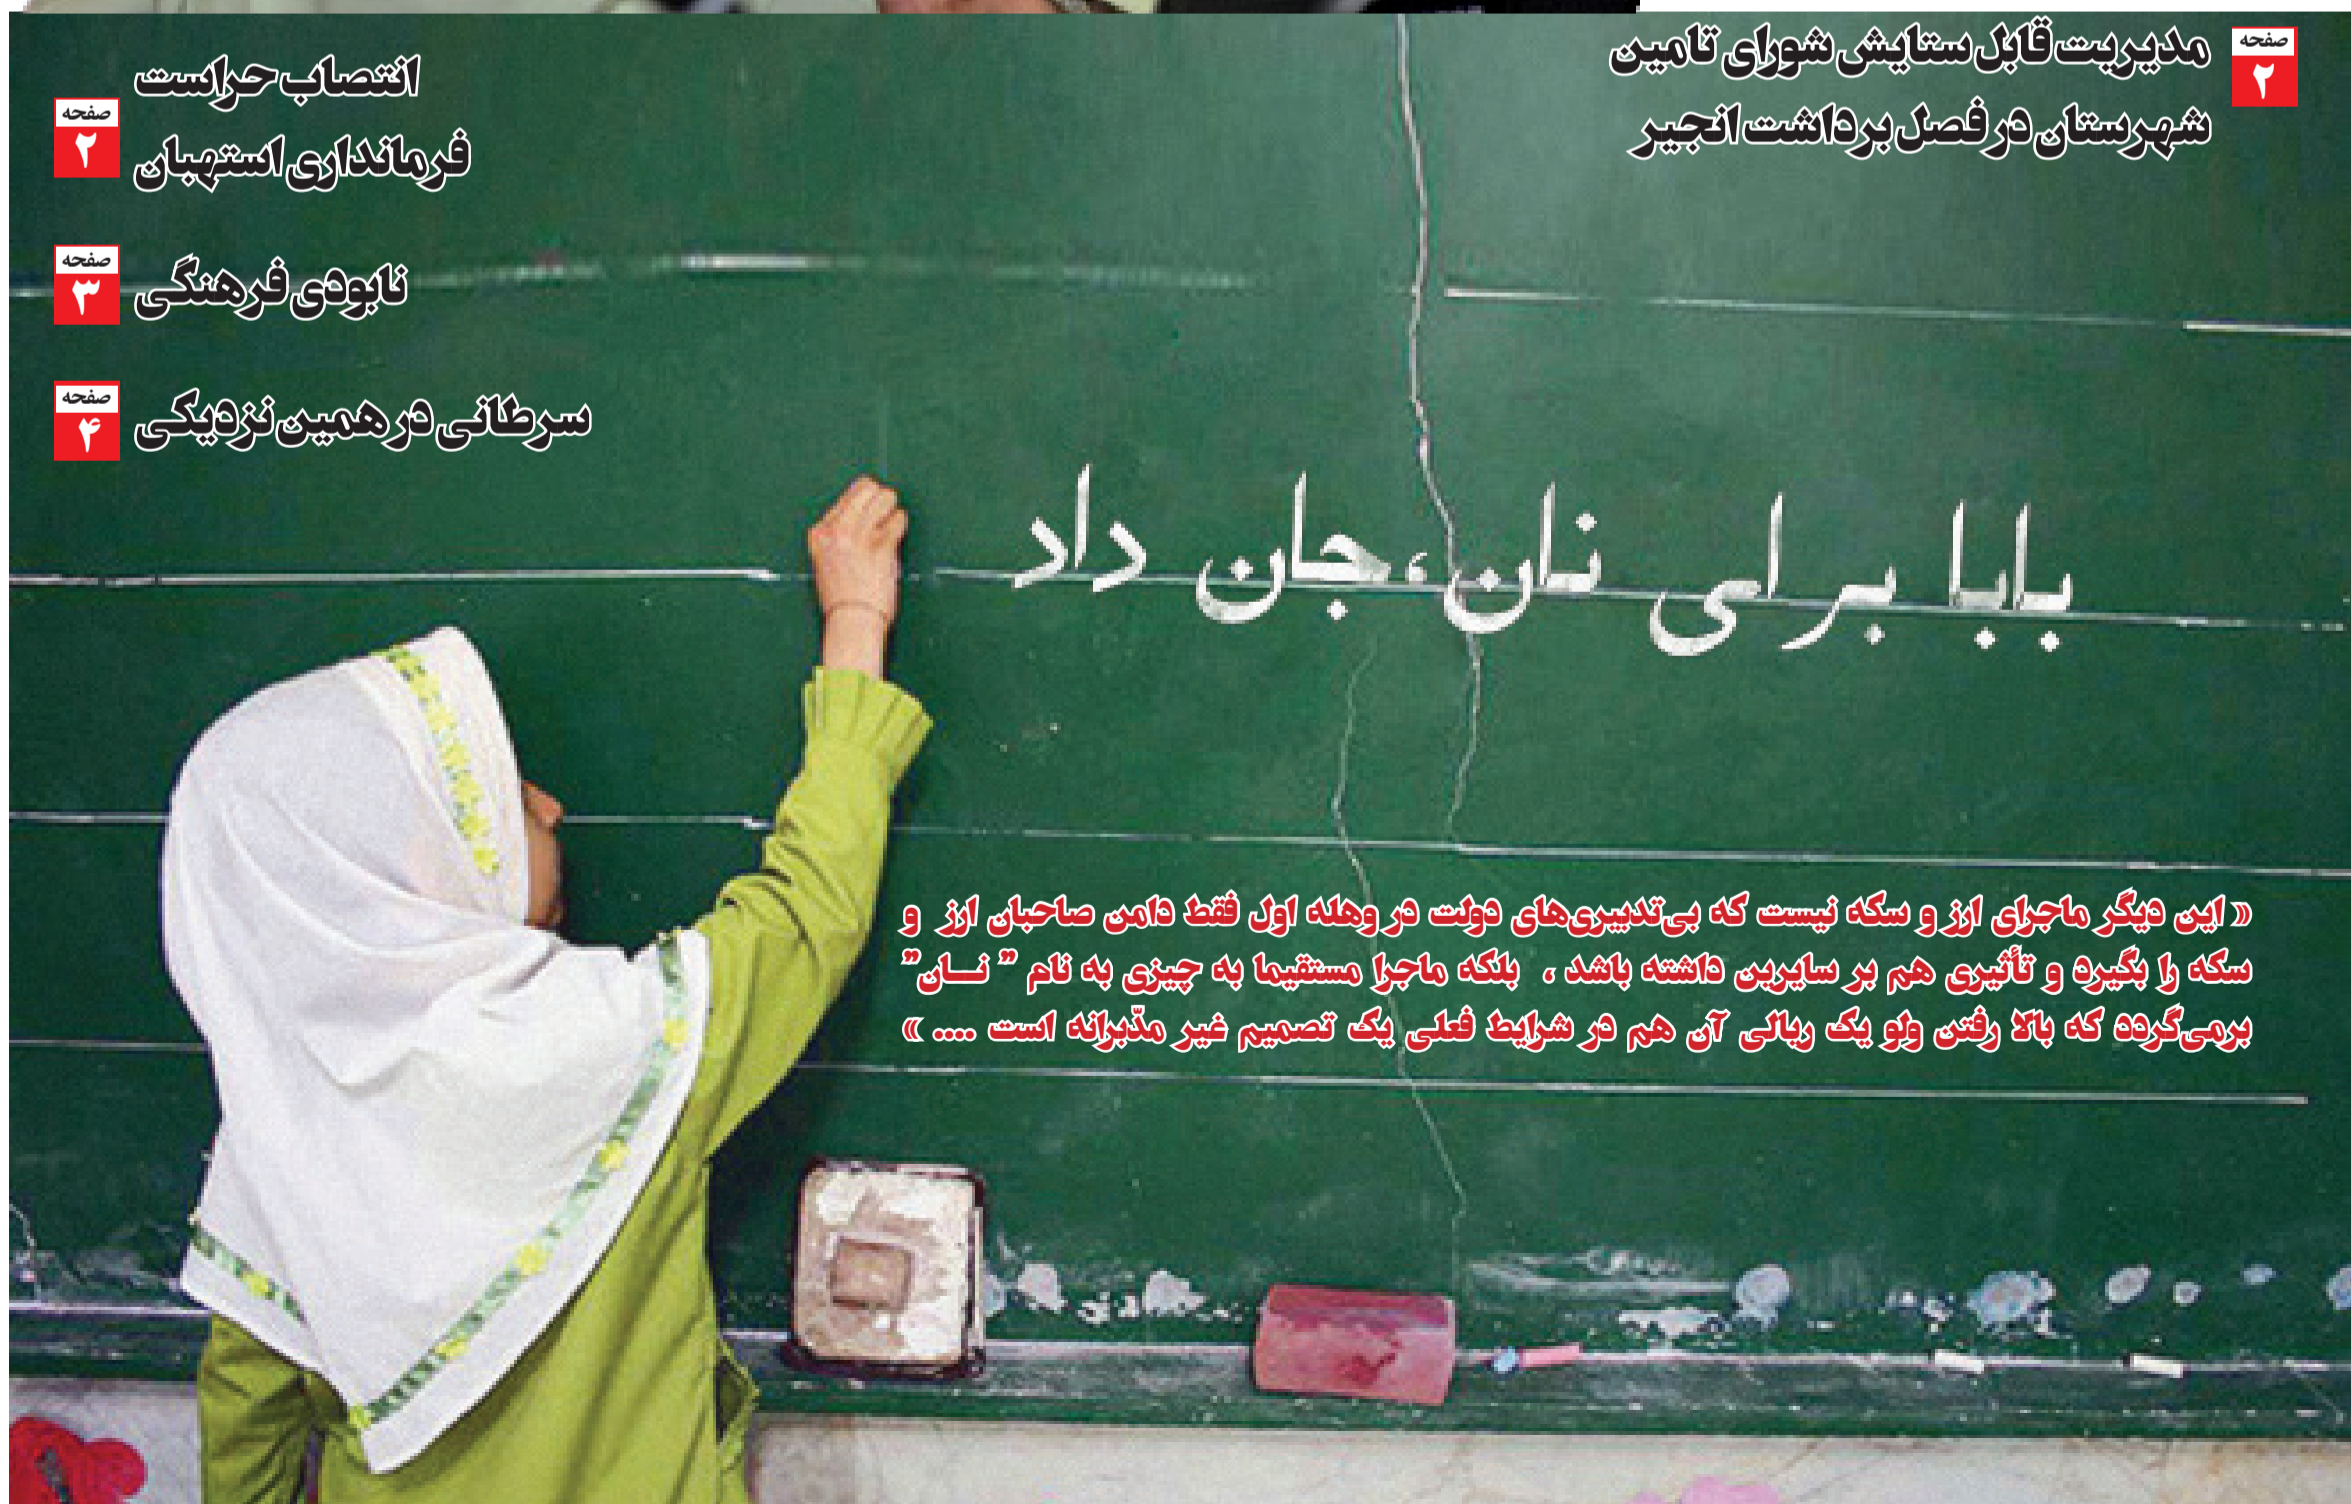 صفحه
۲
مدیریت قابل ستایش شورای تامین
شهرستان در فصل برداشت انجیر
انتصاب حراست
فرمانداری استهبان
صفحه
۲
نابودی فرهنگی
صفحه
۳
سرطانی در همین نزدیکی
صفحه
۴
بابا برای نان، جان داد
« این دیگر ماجرای ارز و سکه نیست که بی‌تدبیری‌های دولت در وهله اول فقط دامن صاحبان ارز و
سکه را بگیرد و تأثیری هم بر سایرین داشته باشد ، بلکه ماجرا مستقیما به چیزی به نام " نــان"
برمی‌گردد که بالا رفتن ولو یک ریالی آن هم در شرایط فعلی یک تصمیم غیر مدّبرانه است .... »